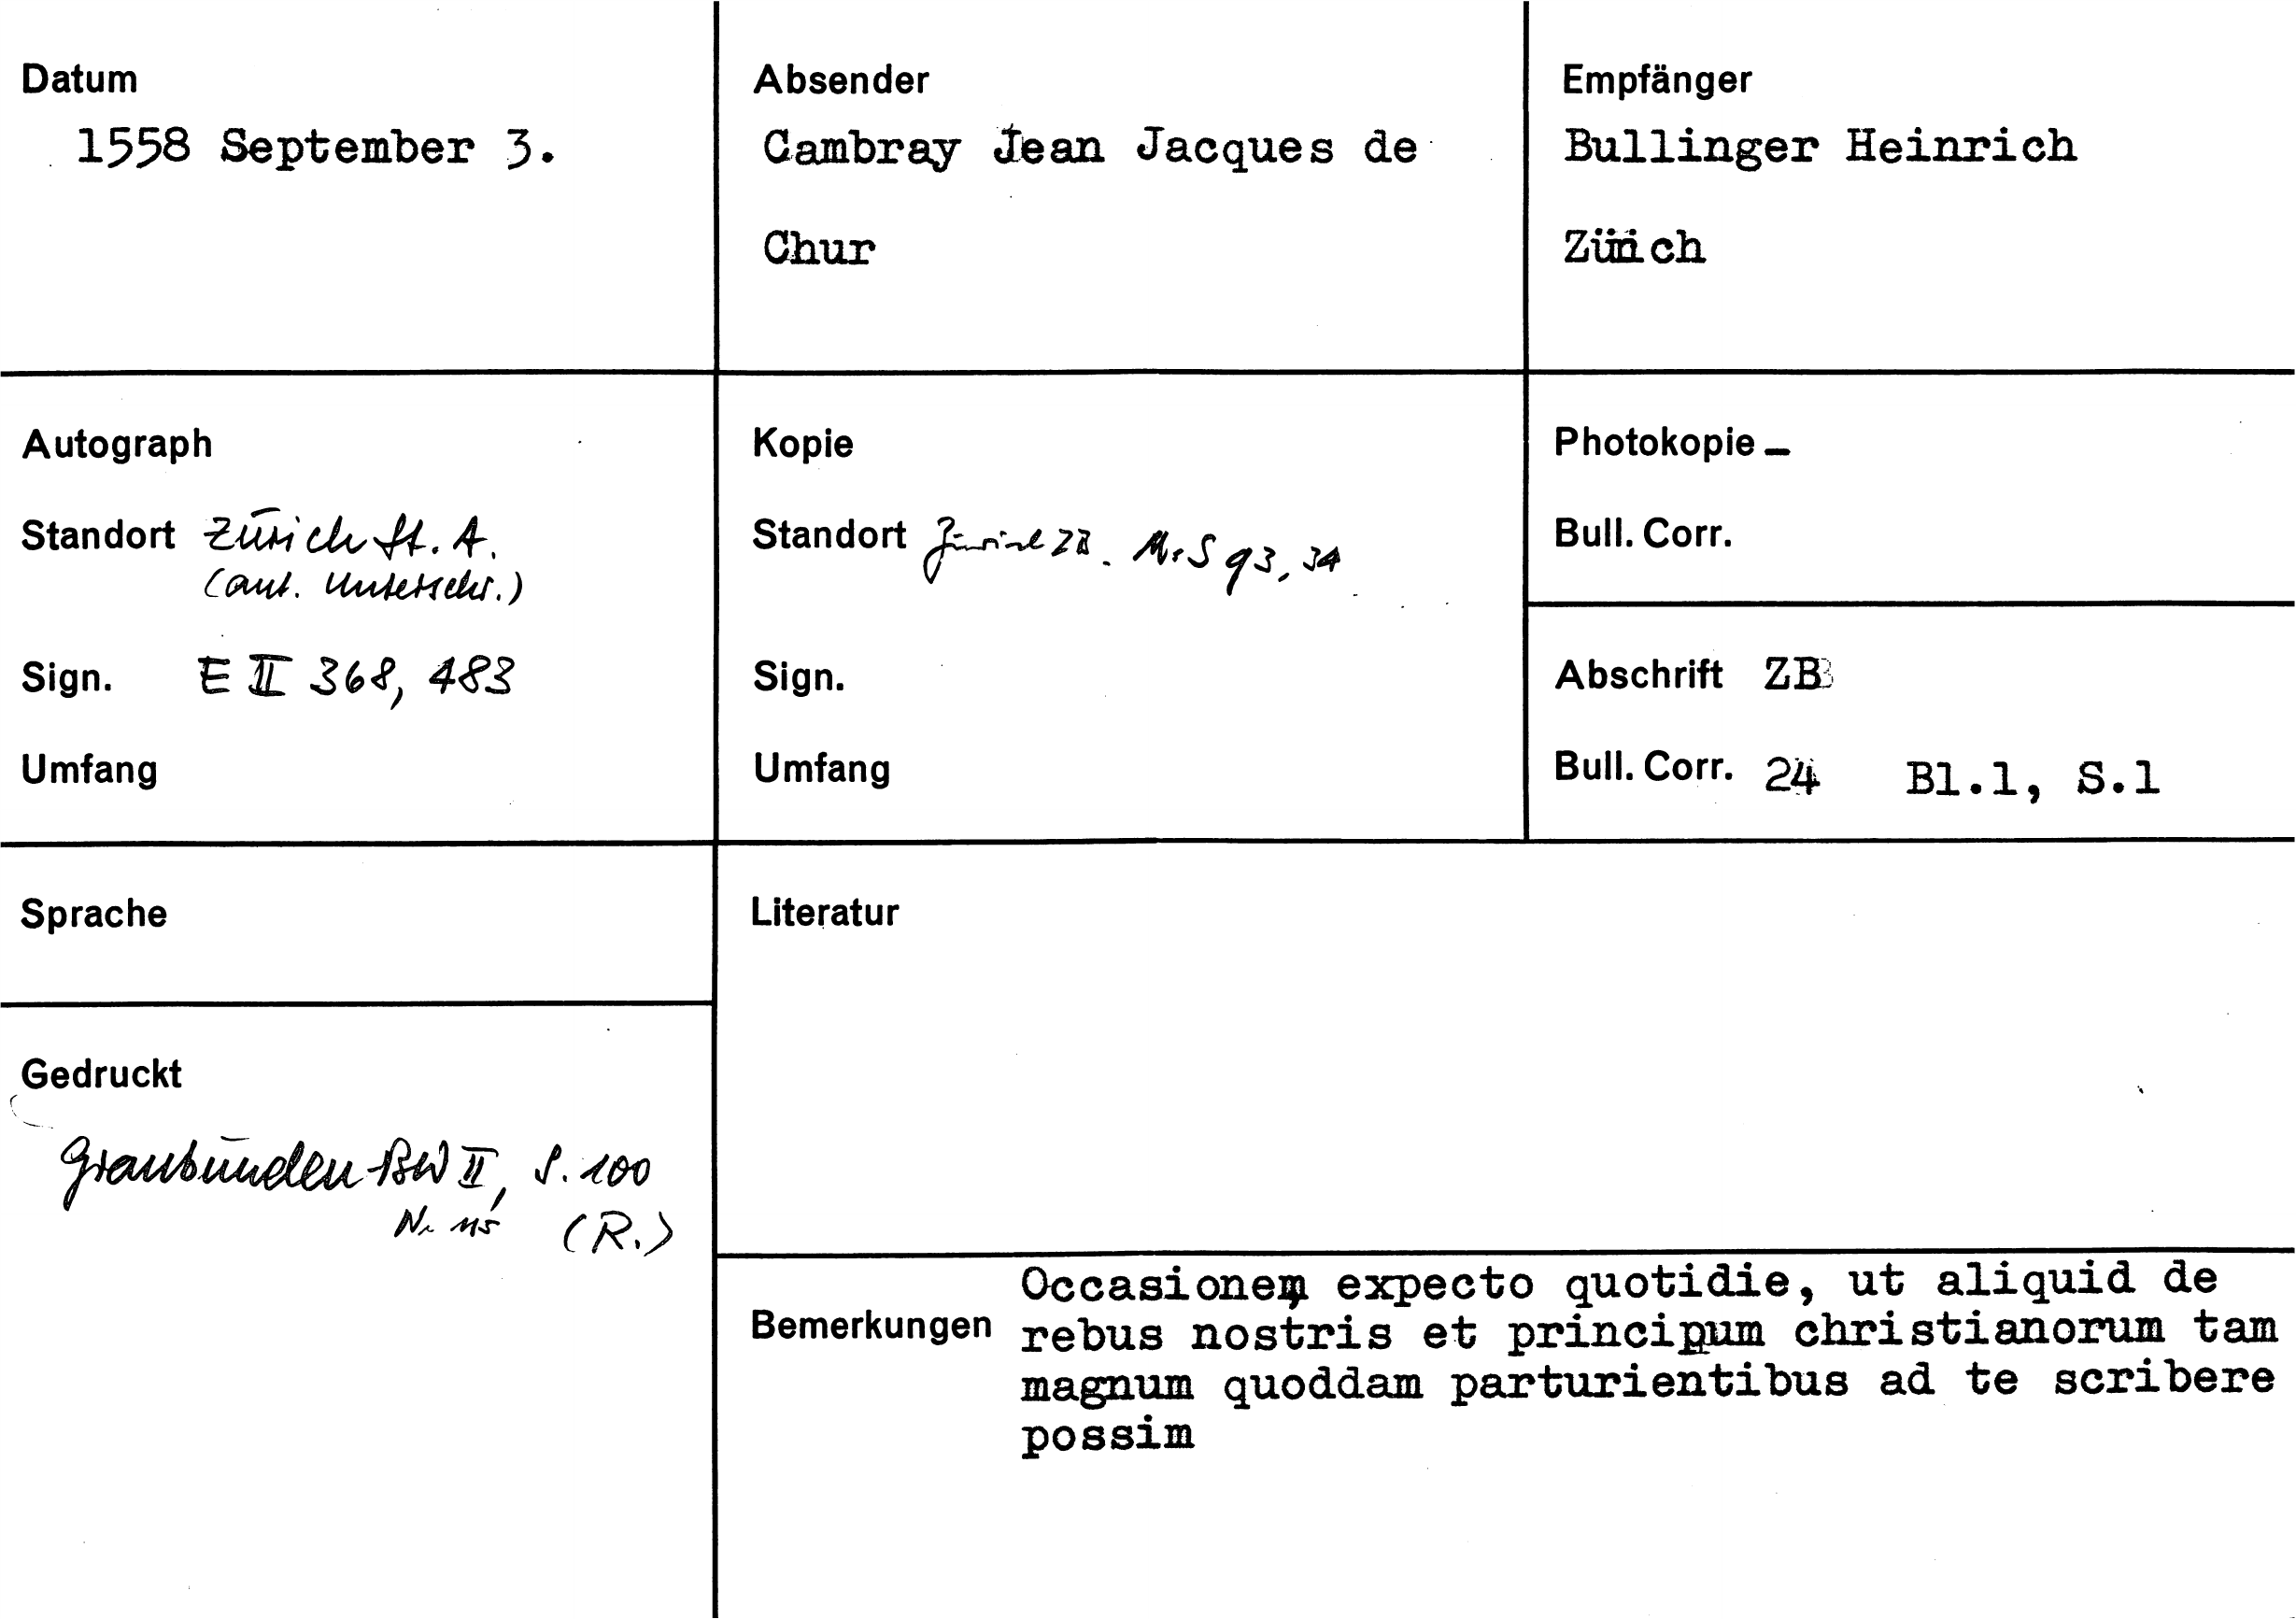 Datum
1558 September 3.
Absender
Cambray Jean Jacques de
Chur
Empfänger
Bullinger Heinrich
Zürich
Autograph
Standort Zürich St. A.
(aut. Unterschr.)
Sign. E II 368, 483
Umfang
Kopie
Standort Zürich ZB. Ms S 93, 34
Sign.
Umfang
Photokopie -
Bull. Corr.
Abschrift ZB
Bull. Corr. 24 Bl.1, S.1
Sprache
Literatur
Gedruckt
Graubünden BW II, S. 100
Nr. 115 (R.)
Bemerkungen
Occasionem expecto quotidie, ut aliquid de
rebus nostris et principum christianorum tam
magnum quoddam parturientibus ad te scribere
possim